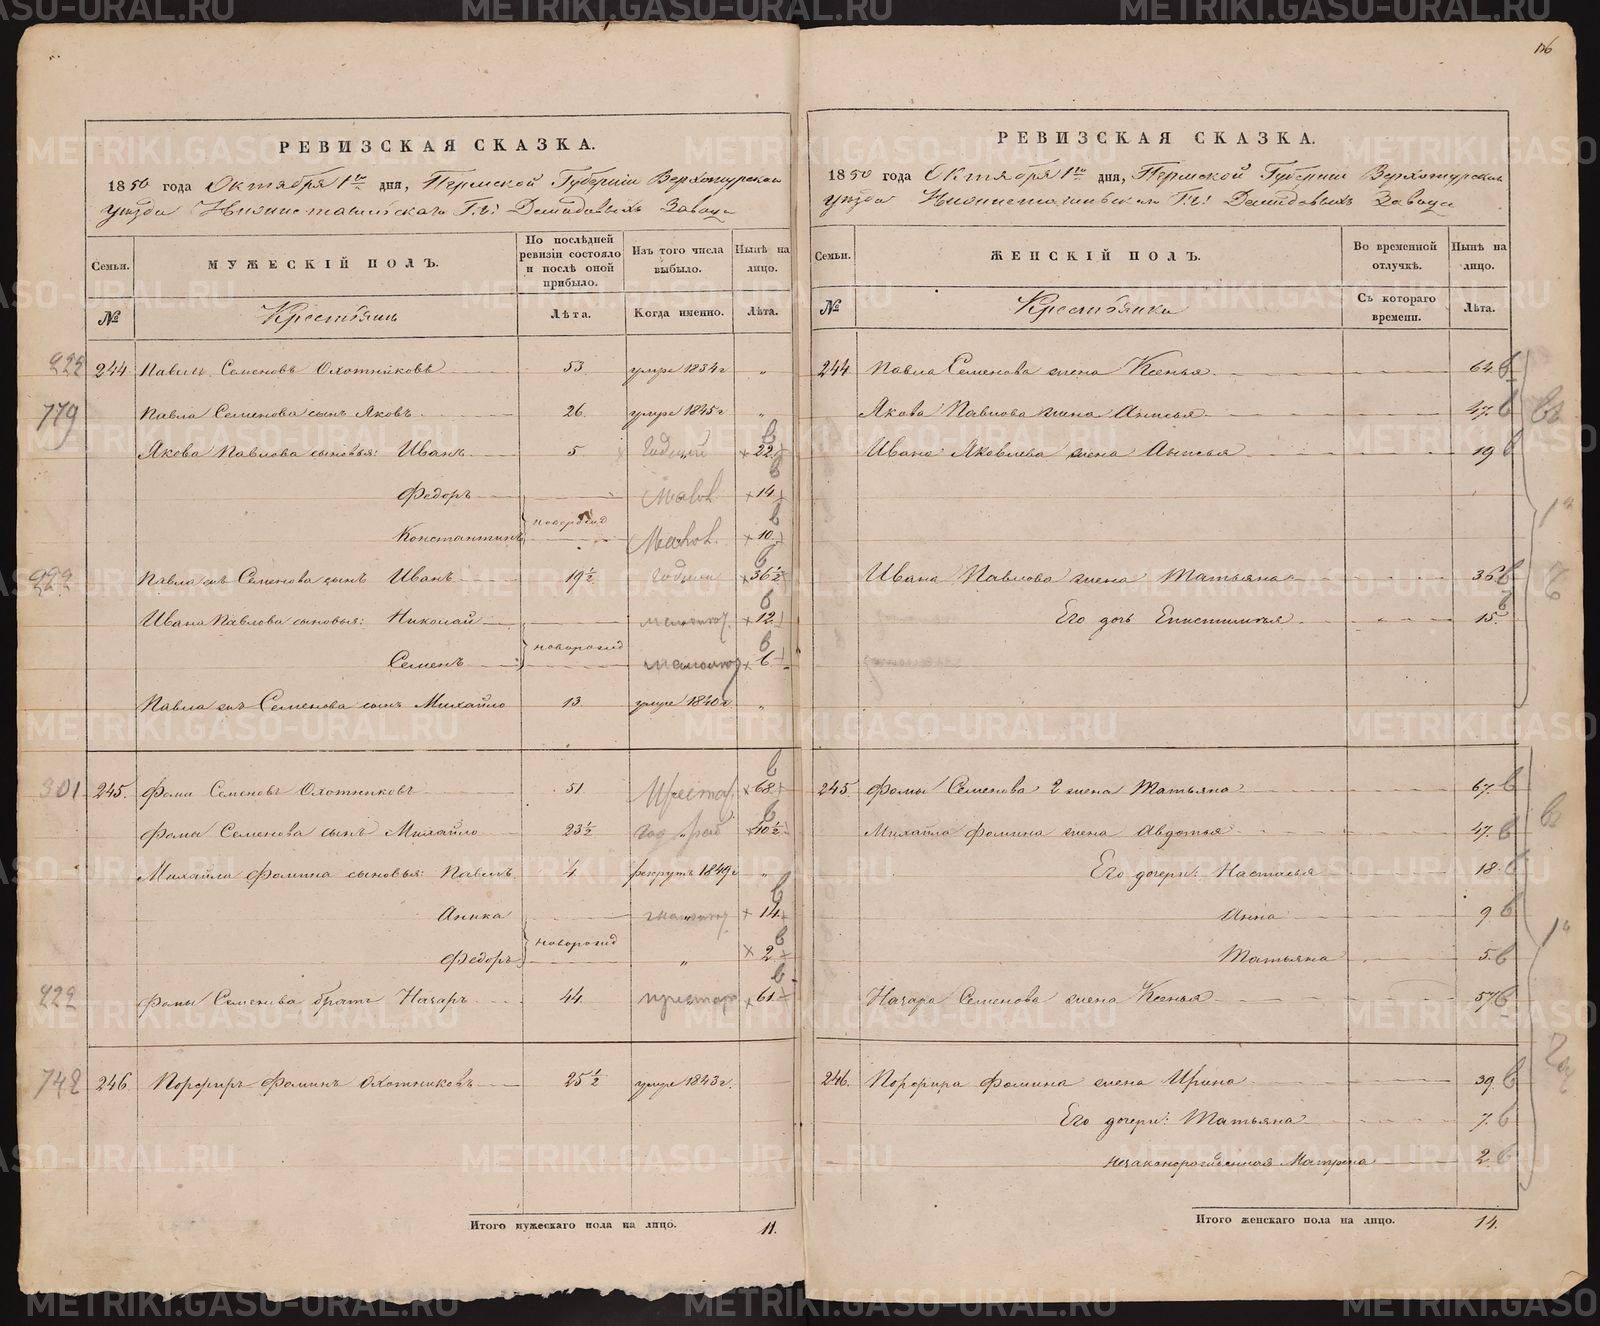 РЕВИЗСКАЯ СКАЗКА.
1850 года Октября 1го дня, Пермской Губернии Верхотурскаго
уезда Нижнетагильскаго Г.г. Демидовыхъ Завода
Семьи.
МУЖЕСКІЙ ПОЛЪ.
По послѣдней ревизіи состояло и послѣ оной прибыло.
Изъ того числа выбыло.
Нынѣ на лицо.
№
Крестьяне
Лѣта.
Когда именно.
Лѣта.
222 244 Павелъ Семеновъ Охотниковъ 53 умре 1834 г „
779 Павла Семенова сынъ Яковъ 26 умре 1845 г „
Якова Павлова сыновья: Иванъ 5 Годный 22
Федоръ 14
Константинъ новорожд 10
222 Павла Семенова сынъ Иванъ 19½ годный 36½
Ивана Павлова сыновья: Николай 12
Семенъ новорожд 6
Павла Семенова сынъ Михайло 13 умре 1840 г „
301 245. Фома Семеновъ Охотниковъ 51 68
Фомы Семенова сынъ Михайло 23½ 40½
Михайла Фомина сыновья: Павелъ 4 рекрутъ 1849 г „
Аника 14
Федоръ новорожд „ 2
222 Фомы Семенова братъ Назаръ 44 61
742 246. Порфиръ Фоминъ Охотниковъ 25½ умре 1843 г.
Итого мужескаго пола на лицо. 11.
РЕВИЗСКАЯ СКАЗКА.
1850 года Октября 1го дня, Пермской Губернии Верхотурскаго
уезда Нижнетагильскаго Г.г. Демидовыхъ Завода
Семьи.
ЖЕНСКІЙ ПОЛЪ.
Во временной отлучкѣ.
Нынѣ на лицо.
№
Крестьянки
Съ котораго времени.
Лѣта.
244 Павла Семенова жена Ксенья 64
Якова Павлова жена Анисья 47
Ивана Яковлева жена Анисья 19
Ивана Павлова жена Татьяна 36
Его дочь Епистимья 15
245 Фомы Семенова 2 жена Татьяна 67
Михайла Фомина жена Авдотья 47
Его дочери: Настасья 18
Анна 9
Татьяна 5
Назара Семенова жена Ксенья 57
246. Порфира Фомина жена Ирина 39
Его дочери: Татьяна 7
незаконорожденная Матрена 2
Итого женскаго пола на лицо. 14.
METRIKI.GASO-URAL.RU